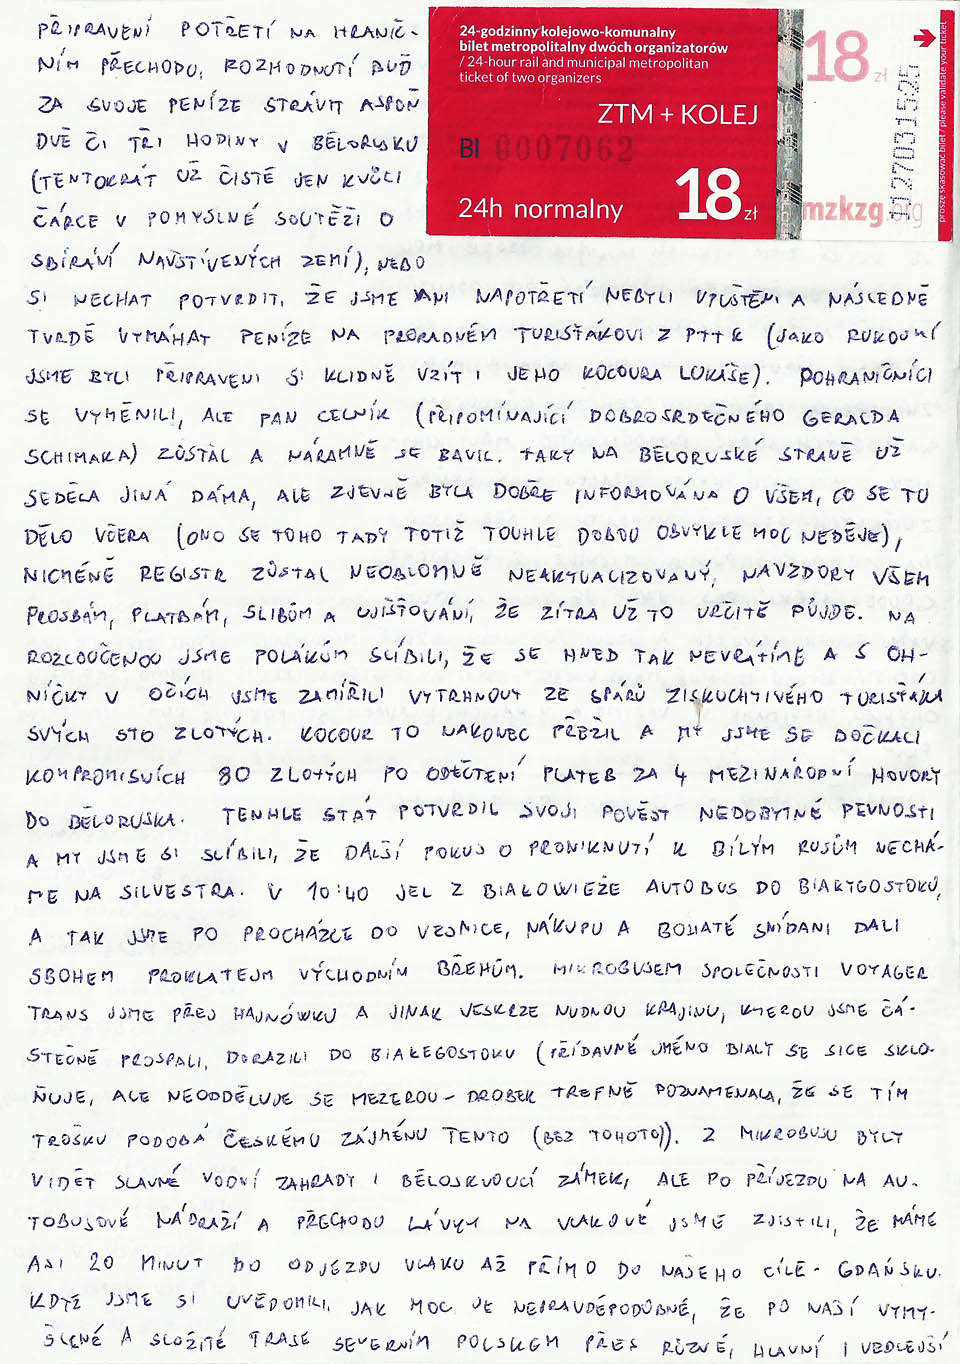 24-godzinny kolejowo-komunalny
bilet metropolitalny dwóch organizatorów
/ 24-hour rail and municipal metropolitan
ticket of two organizers
ZTM + KOLEJ
BI 0007062
24h normalny 18 zł
18 zł
mzkzg.org
prosze skasować bilet / please validate your ticket
PŘIPRAVENÍ POTŘETÍ NA HRANIČ-
NÍM PŘECHODU, ROZHODNUTÍ BUĎ
ZA SVOJE PENÍZE STRÁVIT ASPOŇ
DVĚ ČI TŘI HODINY V BĚLORUSKU
(TENTOKRÁT UŽ ČISTĚ JEN KVŮLI
ČÁRCE V POMYSLNÉ SOUTĚŽI O
SBÍRÁNÍ NAVŠTÍVENÝCH ZEMÍ), NEBO
SI NECHAT POTVRDIT, ŽE JSME ANI NAPOTŘETÍ NEBYLI VPUŠTĚNI A NÁSLEDNĚ
TVRDĚ VYMÁHAT PENÍZE NA PRORADNÉM TURISŤÁKOVI Z PTTK (JAKO RUKOJMÍ
JSME BYLI PŘIPRAVENI SI KLIDNĚ VZÍT I JEHO KOCOURA LUKÁŠE). POHRANIČNÍCI
SE VYMĚNILI, ALE PAN CELNÍK (PŘIPOMÍNAJÍCÍ DOBROSRDEČNÉHO GERALDA
SCHIMAKA) ZŮSTAL A NÁRAMNĚ SE BAVIL. TAKY NA BĚLORUSKÉ STRANĚ UŽ
SEDĚLA JINÁ DÁMA, ALE ZJEVNĚ BYLA DOBŘE INFORMOVÁNA O VŠEM, CO SE TU
DĚLO VČERA (ONO SE TOHO TADY TOTIŽ TOUHLE DOBOU OBVYKLE MOC NEDĚJE),
NICMÉNĚ REGISTR ZŮSTAL NEOBLOMNĚ NEAKTUALIZOVANÝ, NAVZDORY VŠEM
PROSBÁM, PLATBÁM, SLIBŮM A UJIŠŤOVÁNÍ, ŽE ZÍTRA UŽ TO URČITĚ PŮJDE. NA
ROZLOUČENOU JSME POLÁKŮM SLÍBILI, ŽE SE HNED TAK NEVRÁTÍME A S OH-
NÍČKY V OČÍCH JSME ZAMÍŘILI VYTRHNOUT ZE SPÁRŮ ZISKUCHTIVÉHO TURISŤÁKA
SVÝCH STO ZLOTÝCH. KOCOUR TO NAKONEC PŘEŽIL A MY JSME SE DOČKALI
KOMPROMISNÍCH 80 ZLOTÝCH PO ODEČTENÍ PLATEB ZA 4 MEZINÁRODNÍ HOVORY
DO BĚLORUSKA. TENHLE STÁT POTVRDIL SVOJI POVĚST NEDOBYTNÉ PEVNOSTI
A MY JSME SI SLÍBILI, ŽE DALŠÍ POKUS O PRONIKNUTÍ K BÍLÝM RUSŮM NECHÁ-
ME NA SILVESTRA. V 10:40 JEL Z BIAŁOWIEŻE AUTOBUS DO BIAŁYGOSTOKU,
A TAK JSME PO PROCHÁZCE DO VESNICE, NÁKUPU A BOHATÉ SNÍDANI DALI
SBOHEM PROKLATEJM VÝCHODNÍM BŘEHŮM. MIKROBUSEM SPOLEČNOSTI VOYAGER
TRANS JSME PŘEJ HAJNÓWKU A JINAK VESKRZE NUDNOU KRAJINU, KTEROU JSME ČÁ-
STEČNĚ PROSPALI, DORAZILI DO BIAŁEGOSTOKU (PŘÍDAVNÉ JMÉNO BIAŁY SE SICE SKLO-
ŇUJE, ALE NEODDĚLUJE SE MEZEROU - DROBEK TREFNĚ POZNAMENALA, ŽE SE TÍM
TROŠKU PODOBÁ ČESKÉMU ZÁJMENU TENTO (BEZ TOHOTO)). Z MIKROBUSU BYLY
VIDĚT SLAVNÉ VODNÍ ZAHRADY I BĚLOSKVOUCÍ ZÁMEK, ALE PO PŘÍJEZDU NA AU-
TOBUSOVÉ NÁDRAŽÍ A PŘECHODU LÁVKY NA VLAKOVÉ JSME ZJISTILI, ŽE MÁME
ASI 20 MINUT DO ODJEZDU VLAKU AŽ PŘÍMO DO NAŠEHO CÍLE - GDAŇSKU.
KDYŽ JSME SI UVĚDOMILI, JAK MOC JE NEPRAVDĚPODOBNÉ, ŽE PO NAŠÍ VYMY-
ŠLENÉ A SLOŽITÉ TRASE SEVERNÍM POLSKEM PŘES RŮZNÉ, HLAVNÍ I VEDLEJŠÍ